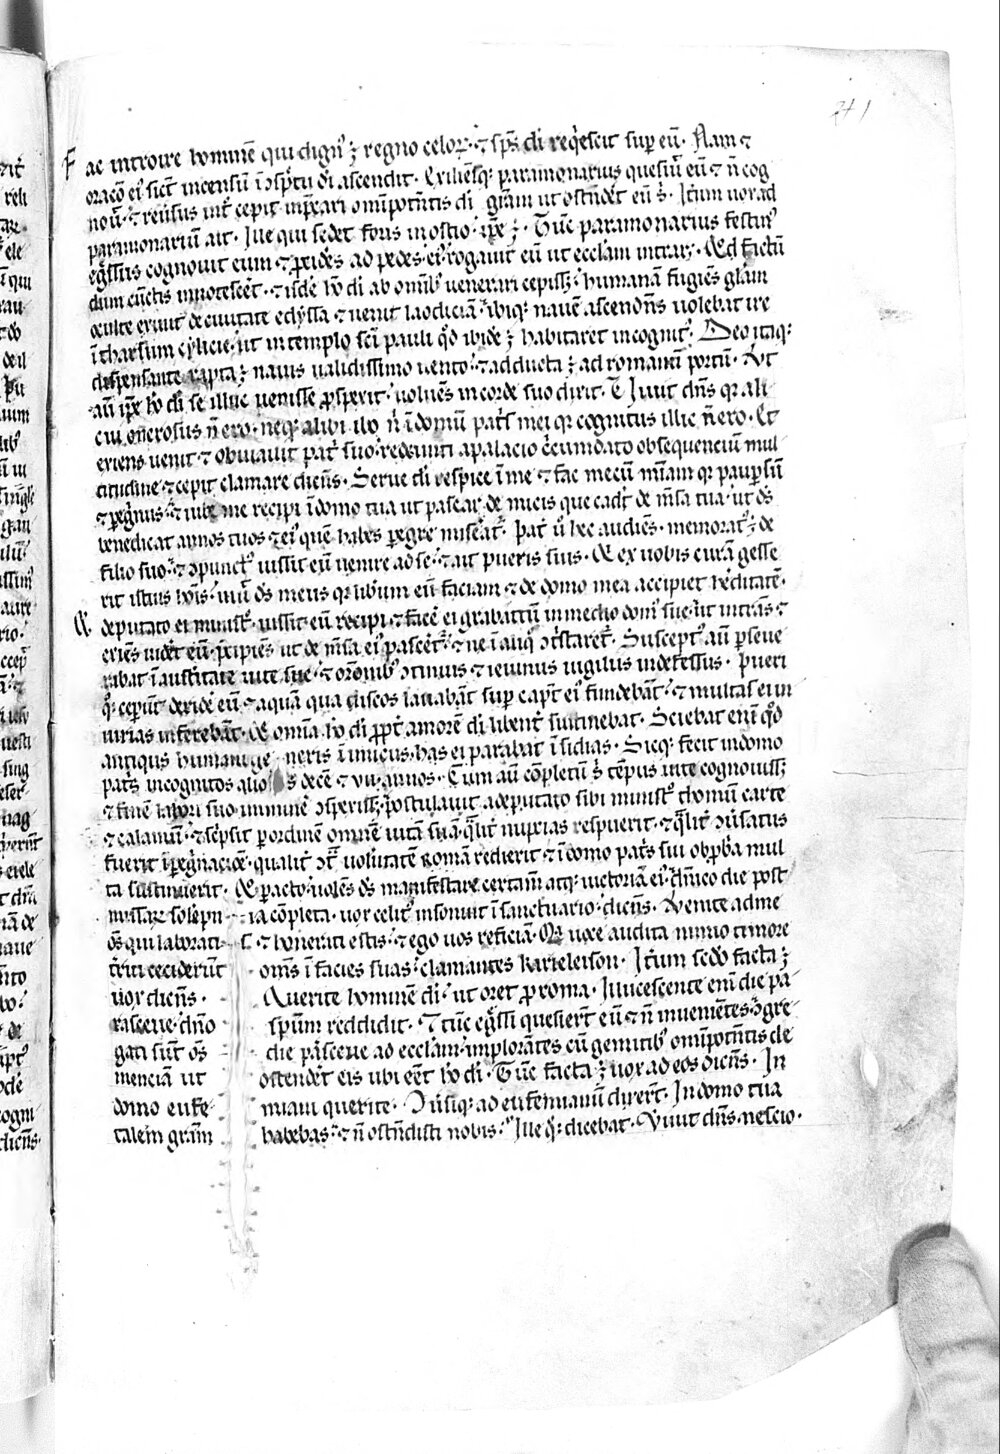 241
Fac introire hominē qui dignꝰ ÷ regno celoꝝ. ⁊ sps̄ di reqͥescit suꝑ eū. Nam ⁊
oracō eiꝰ sicut incensum ī ɔspc̄tu di ascendit. Exiliēsqꝫ paramonarius quesiuit eū ⁊ n̄ cog
nouit. ⁊ reuersus int͛ cepit inprecari omīpotētis di gr̄am ut ostēdēt eū s̄. It͛um uox ad
paramonariū ait. Ille qui sedet foris in ostio. ip̄e ÷. Tūc paramonarius festinꝰ
egressus cognouit eum ⁊ ꝓcidēs ad pedes eiꝰ rogauit eū ut eccl̄am intrar͛. Qd̓ factū
dum cūctis innotescēt. ⁊ isdē hō di ab omīb; uenerari cepiss;. humanā fugiēs gl̄am
occulte exiuit de ciuitate edyssa ⁊ uenit laodiciā. ibiqꝫ nauē ascendens uolebat ire
ī tharsum cylicie. ut in templo sc̄i pauli qd̓ ibidē ÷ habitaret incognitꝰ. Deo itaqꝫ
dispensante rapta ÷ nauis ualidissimo uento. ⁊ adducta ÷ ad romanū portū. Ut
aū ip̄e hō di se illuc uenisse ꝓspexit. uoluēs in corde suo dixit. Uiuit dn̄s qꝛ ali
cui onerosus n̄ ero. neqꝫ alibi ibo n̄ ī domū pat͛s mei qꝛ cognitus illic n̄ ero. Et
exiens uenit ⁊ obuiauit pat͛ suo redeunti a palacio c͛cumdato obsequenciū mul
titudine ⁊ cepit clamare dicens. Serue di respice ī me ⁊ fac mecū m̄iam qꝛ pauꝑ sū
⁊ peͣgͥnus. ⁊ iube me recipi ī domo tua ut pascar de micis que cadūt de m̄sa tua. ut ds̄
benedicat annos tuos ⁊ eiꝰ quē habes peregre mise͛at͛. Pat͛ u͛o hec audiēs. memoratꝰ ÷ de
filio suo. ⁊ ɔpunctꝰ iussit eū uenire ad se. ⁊ ait pueris suis. Q̇ ex uobis curā gesse
rit istius hōis. uiuit ds̄ meus qꝛ lib͛um eū faciam ⁊ de domo mea accipiet h͛editatē.
deputato ei minist͛. iussit eū recipi ⁊ fac͛e ei grabattū in medio domꝰ sue. ut intrās ⁊
exiēs uidēt eū. p͛cipiēs ut de m̄sa eiꝰ pascēt͛. ⁊ ne ī aliqͦ ɔt͛staret͛. Susceptꝰ aū ꝑseue
rabat ī aust͛itate uite sue. ⁊ or̄onibꝰ ɔtinuis ⁊ ieiunus uigiliis indefessus. Pueri
qͦꝫ ceperūt deride͛ eū. ⁊ aquā qua discos lauabāt suꝑ capt͛ eiꝰ fundebāt. ⁊ multas ei in
iurias inferebāt. q̄ omīa hō di ꝓpt͛ amorē di libent͛ sustinebat. Sciebat eni qd̓
antiqus humani ge neris īimicus has ei parabat ī sidias. Sicqꝫ fecit in domo
pat͛s incognitus alios decē ⁊ vii. annos. Cum aū cōpletū s̄ tēpus uite cognouiss;
⁊ finē labori suo imminē͛ ɔspexiss;. postulauit a deputato sibi minist͛o thomū carte
⁊ calamū. ⁊ sc͛psit ꝑ ordinē omnē uitā suā. qͣlit͛ nupcias respuerit. ⁊ qͣlit͛ ɔu͛satus
fuerit ī peͣgͥnacōe. qualit͛ ɔtͣ uolūtatē romā redierit ⁊ ī domo pat͛s sui obꝓbͥa mul
ta sustinuerit. Q̇ peͣcto uolēs ds̄ manifestare certam̄ atqꝫ uictoriā eiꝰ. dn̄ico die post
missaꝝ solēpn ia cōpleta. uox celitꝰ insonuit ī sanctuario. dicens. Uenite ad me
ōs qui laborati s ⁊ honerati estis. ⁊ ego uos reficiā. Qͣ uoce audita nimio timore
t͛riti ceciderūt omēs ī facies suas. clamantes kyrieleison. It͛um sed̓o facta ÷
uox dicens. Querite hominē di. ut oret ꝓ roma. Illucescente eni die pa
rasceue. dn̄o spūm reddidit. ⁊ tūc eg͛ssi quesier̄t eū ⁊ n̄ inuenietes. ɔg͛re
gati sūt ōs die pa͛sceue ad eccl̄am. implorātes cū gemitibꝰ omīpotētis cle
menciā ut ostendēt eis ubi eēt hō di. Tūc facta ÷ uox ad eos dicens. In
domo eufe miani querite. Ɔu͛siqꝫ ad eufemianū dixer̄t. In domo tua
talem gr̄am habebas. ⁊ n̄ ostēdisti nobis. Ille qͦꝫ dicebat. Uiuit dn̄s. nescio.